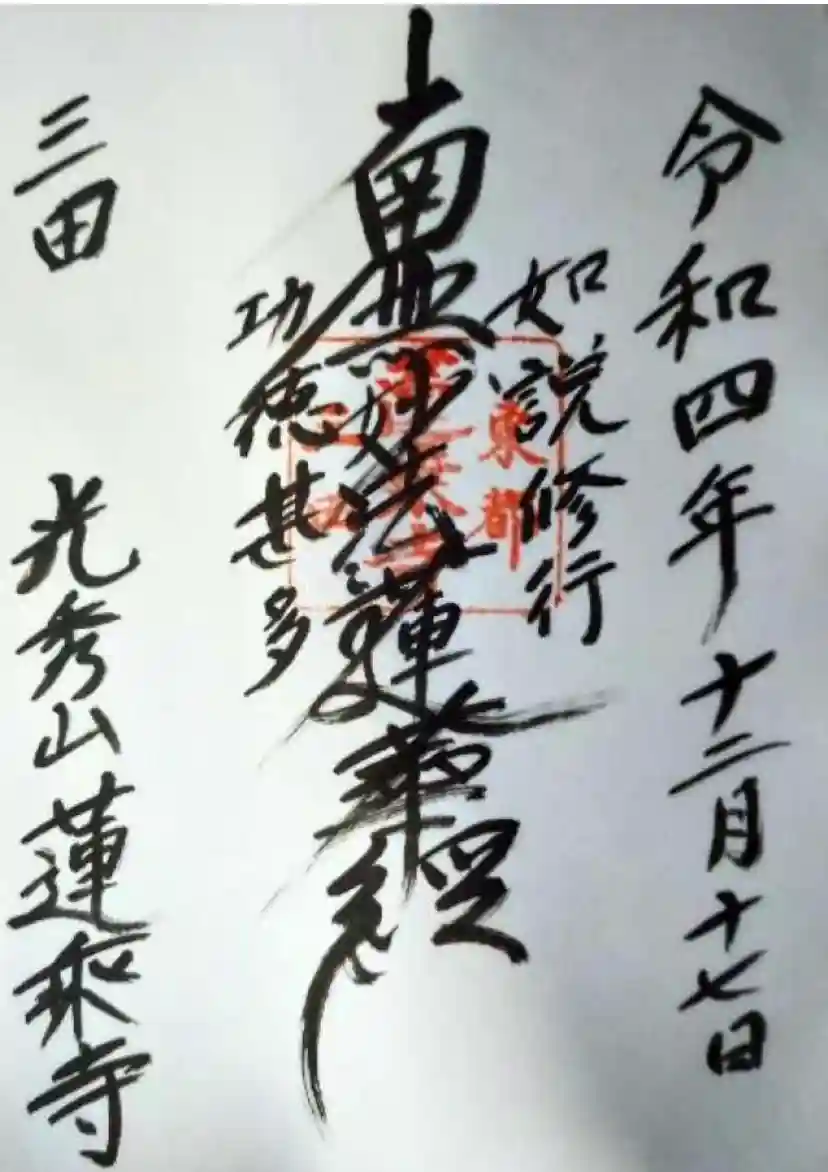 令和四年十二月十七日
如説修行
南無妙法蓮華経
功徳甚多
三田 光秀山蓮乗寺
東都